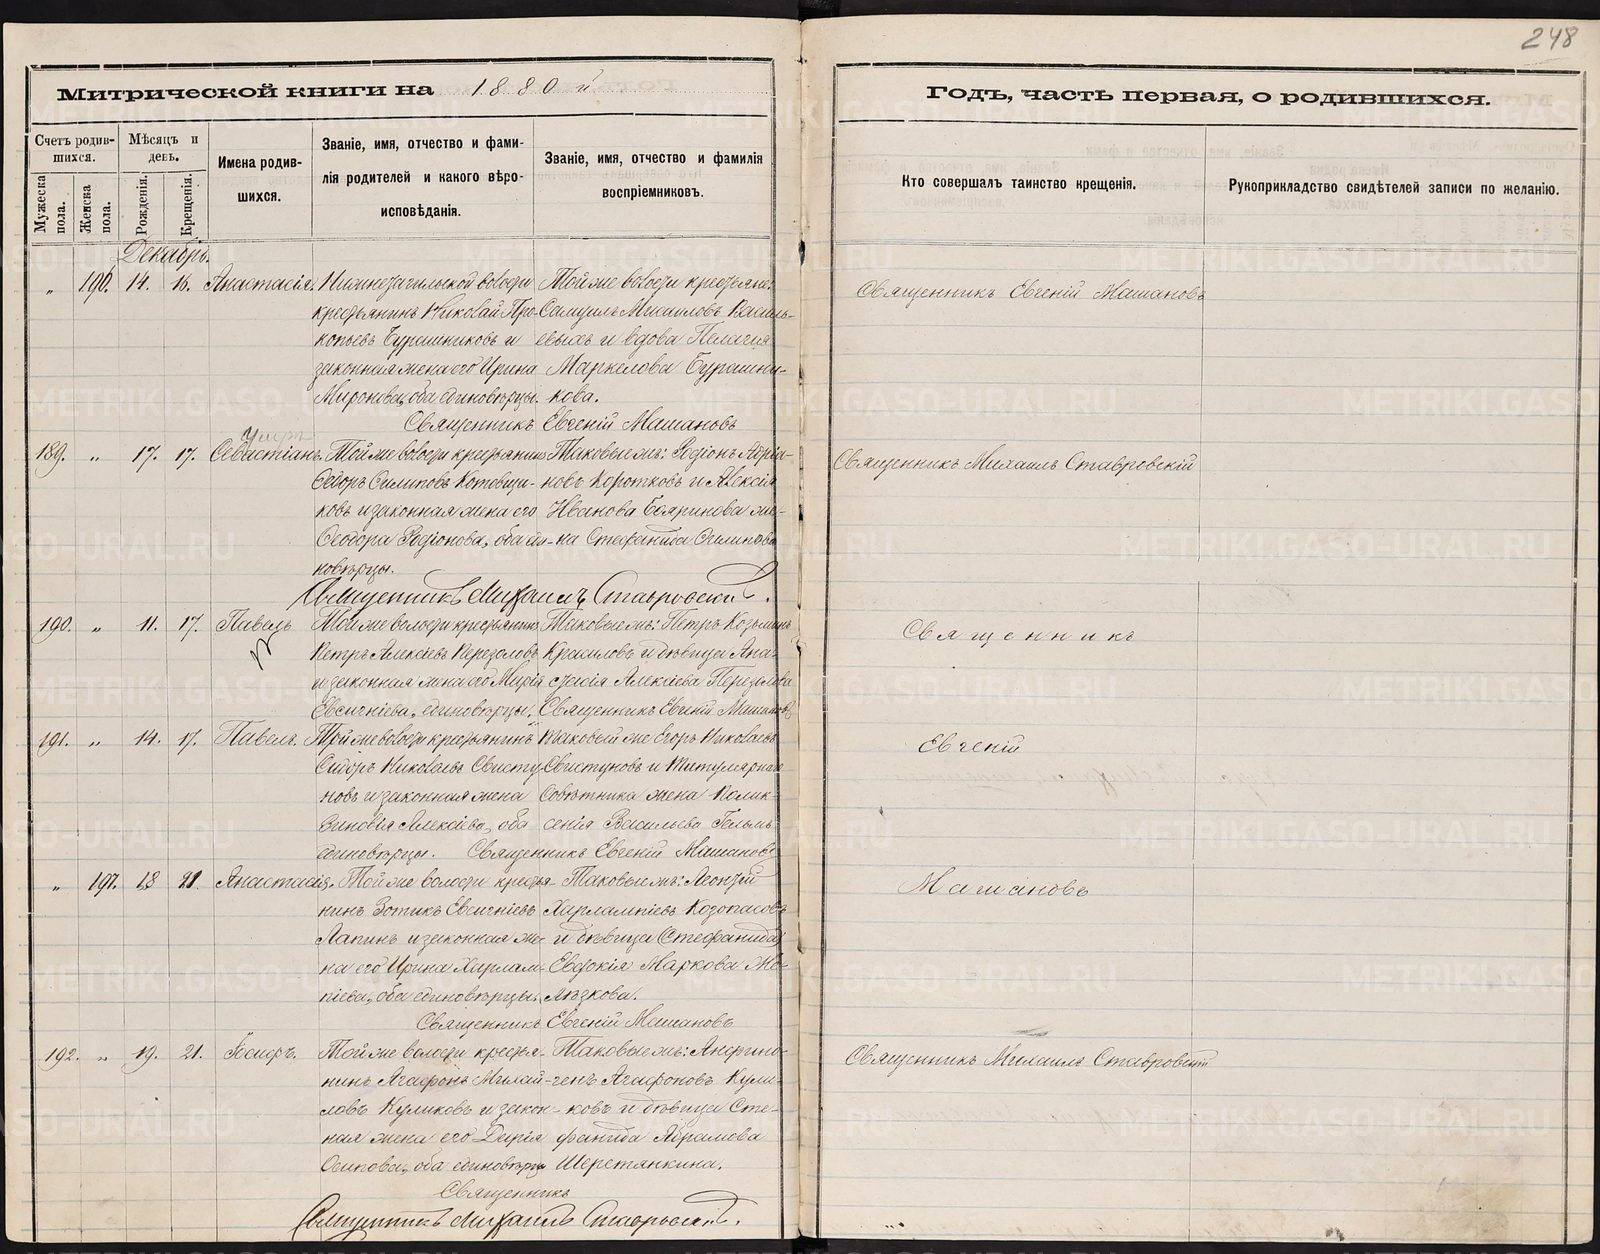 248
Митрической книги на 1880 й
Годъ, часть первая, о родившихся.
Счетъ родившихся.
Мужеска пола.
Женска пола.
Мѣсяцъ и день.
Рожденія.
Крещенія.
Имена родившихся.
Званіе, имя, отчество и фамилія родителей и какого вѣроисповѣданія.
Званіе, имя, отчество и фамилія воспріемниковъ.
Кто совершалъ таинство крещенія.
Рукоприкладство свидѣтелей записи по желанію.
Декабрь.
„ 190. 14. 16. Анастасія.
Нижнетагильской волости
крестьянинъ Николай Про-
копьевъ Бурашниковъ и
законная жена его Ирина
Миронова, оба единовѣрцы.
Той же волости крестьяне:
Самуилъ Михаиловъ Василь-
евыхъ и вдова Пелагія
Маркелова Бурашни-
кова.
Священникъ Евгеній Машановъ
Священникъ Евгеній Машановъ
умеръ
189. „ 17. 17. Севастіанъ.
Той же волости крестьянинъ
Ѳедоръ Филиповъ Котовщи-
ковъ и законная жена его
Ѳеодора Родіонова, оба еди-
новѣрцы.
Таковые жъ: Родіонъ Адріа-
новъ Коротковъ и Алексѣя
Иванова Бояринова же-
на Стефанида Филипова
Священникъ Михаилъ Ставровскій.
Священникъ Михаилъ Ставровскій
190. „ 11. 17. Павелъ
Той же волости крестьянинъ
Петръ Алексѣевъ Перезоловъ
и законная жена его Марія
Евсигніева, единовѣрцы.
Таковые жъ: Петръ Козьминъ
Красиловъ и дѣвица Ана-
стасія Алексѣева Перезолова
Священникъ Евгеній Машановъ
Священникъ
191. „ 14. 17. Павелъ.
Той же волости крестьянинъ
Сидоръ Николаевъ Свисту-
новъ и законная жена
Зиновія Алексѣева, оба
единовѣрцы.
Таковый же Егоръ Николаевъ
Свистуновъ и Титулярнаго
Совѣтника жена Поликсенія Васильева Гельмъ
Священникъ Евгеній Машановъ
Евгеній
„ 197. 18 21. Анастасія.
Той же волости крестья-
нинъ Зотикъ Евсигніевъ
Лапинъ и законная же-
на его Ирина Харлам-
піева, оба единовѣрцы.
Таковые жъ: Леонтій
Харлампіевъ Козопасовъ
и дѣвица (Стефанида)
Евдокія Маркова Же-
лѣзкова.
Священникъ Евгеній Машановъ
Машановъ
192. „ 19. 21. Іосифъ.
Той же волости крестья-
нинъ Агафонъ Михаи-
ловъ Куликовъ и закон-
ная жена его Дарія
Осипова, оба единовѣрцы
Таковые жъ: Анфино-
генъ Агафоновъ Кули-
ковъ и дѣвица Сте-
фанида Абрамова
Шеретянкина.
Священникъ
Священникъ Михаилъ Ставровскій.
Священникъ Михаилъ Ставровскій
METRIKI.GASO-URAL.RU